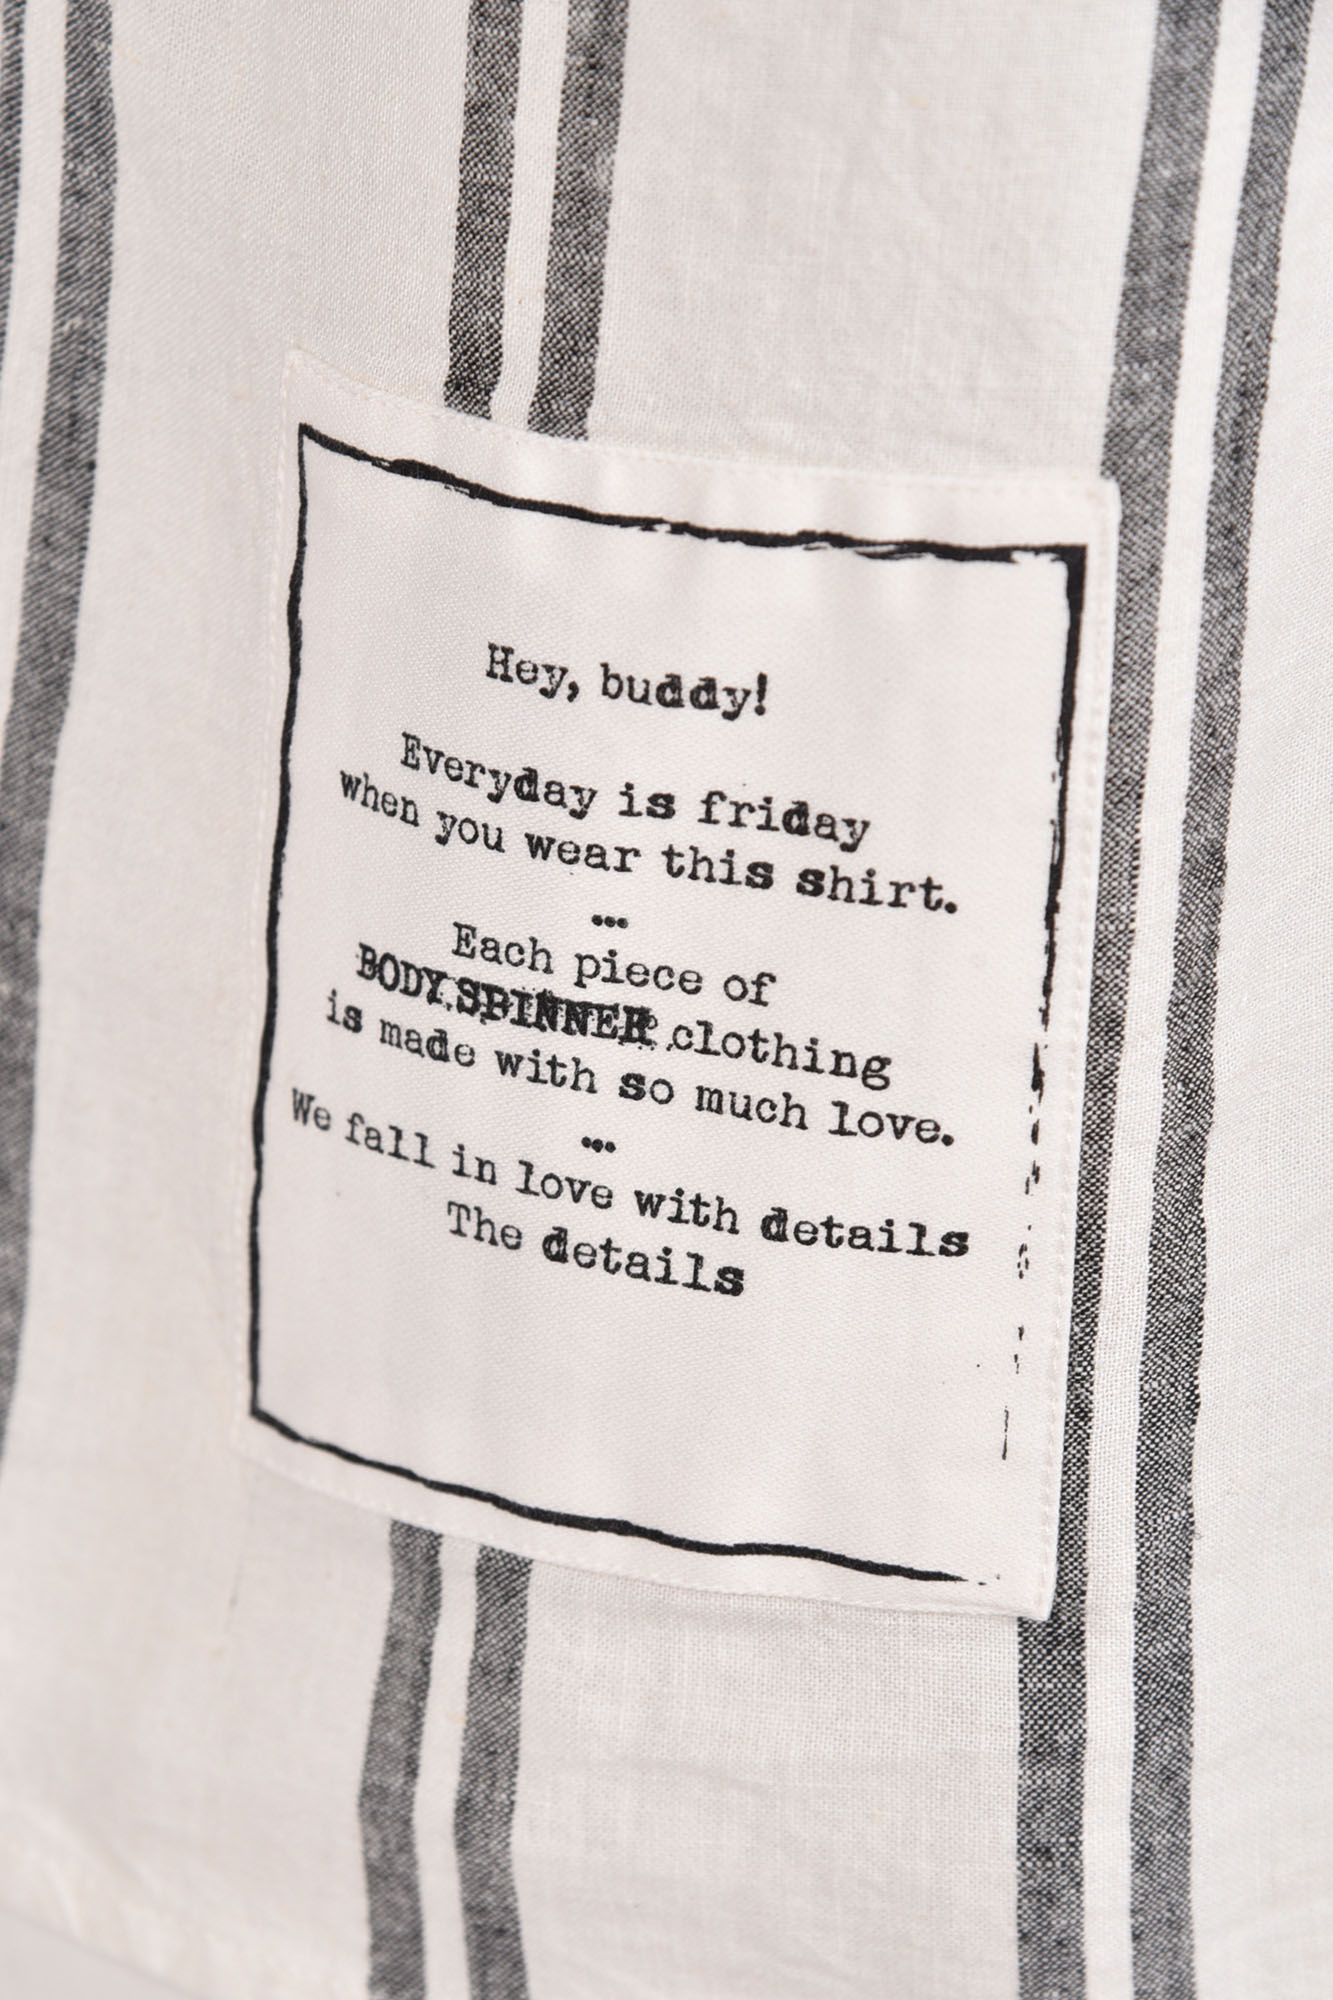 Hey, buddy!
Everyday is friday
when you wear this shirt.
...
Each piece of
BODY SPINNER clothing
is made with so much love.
...
We fall in love with details
The details